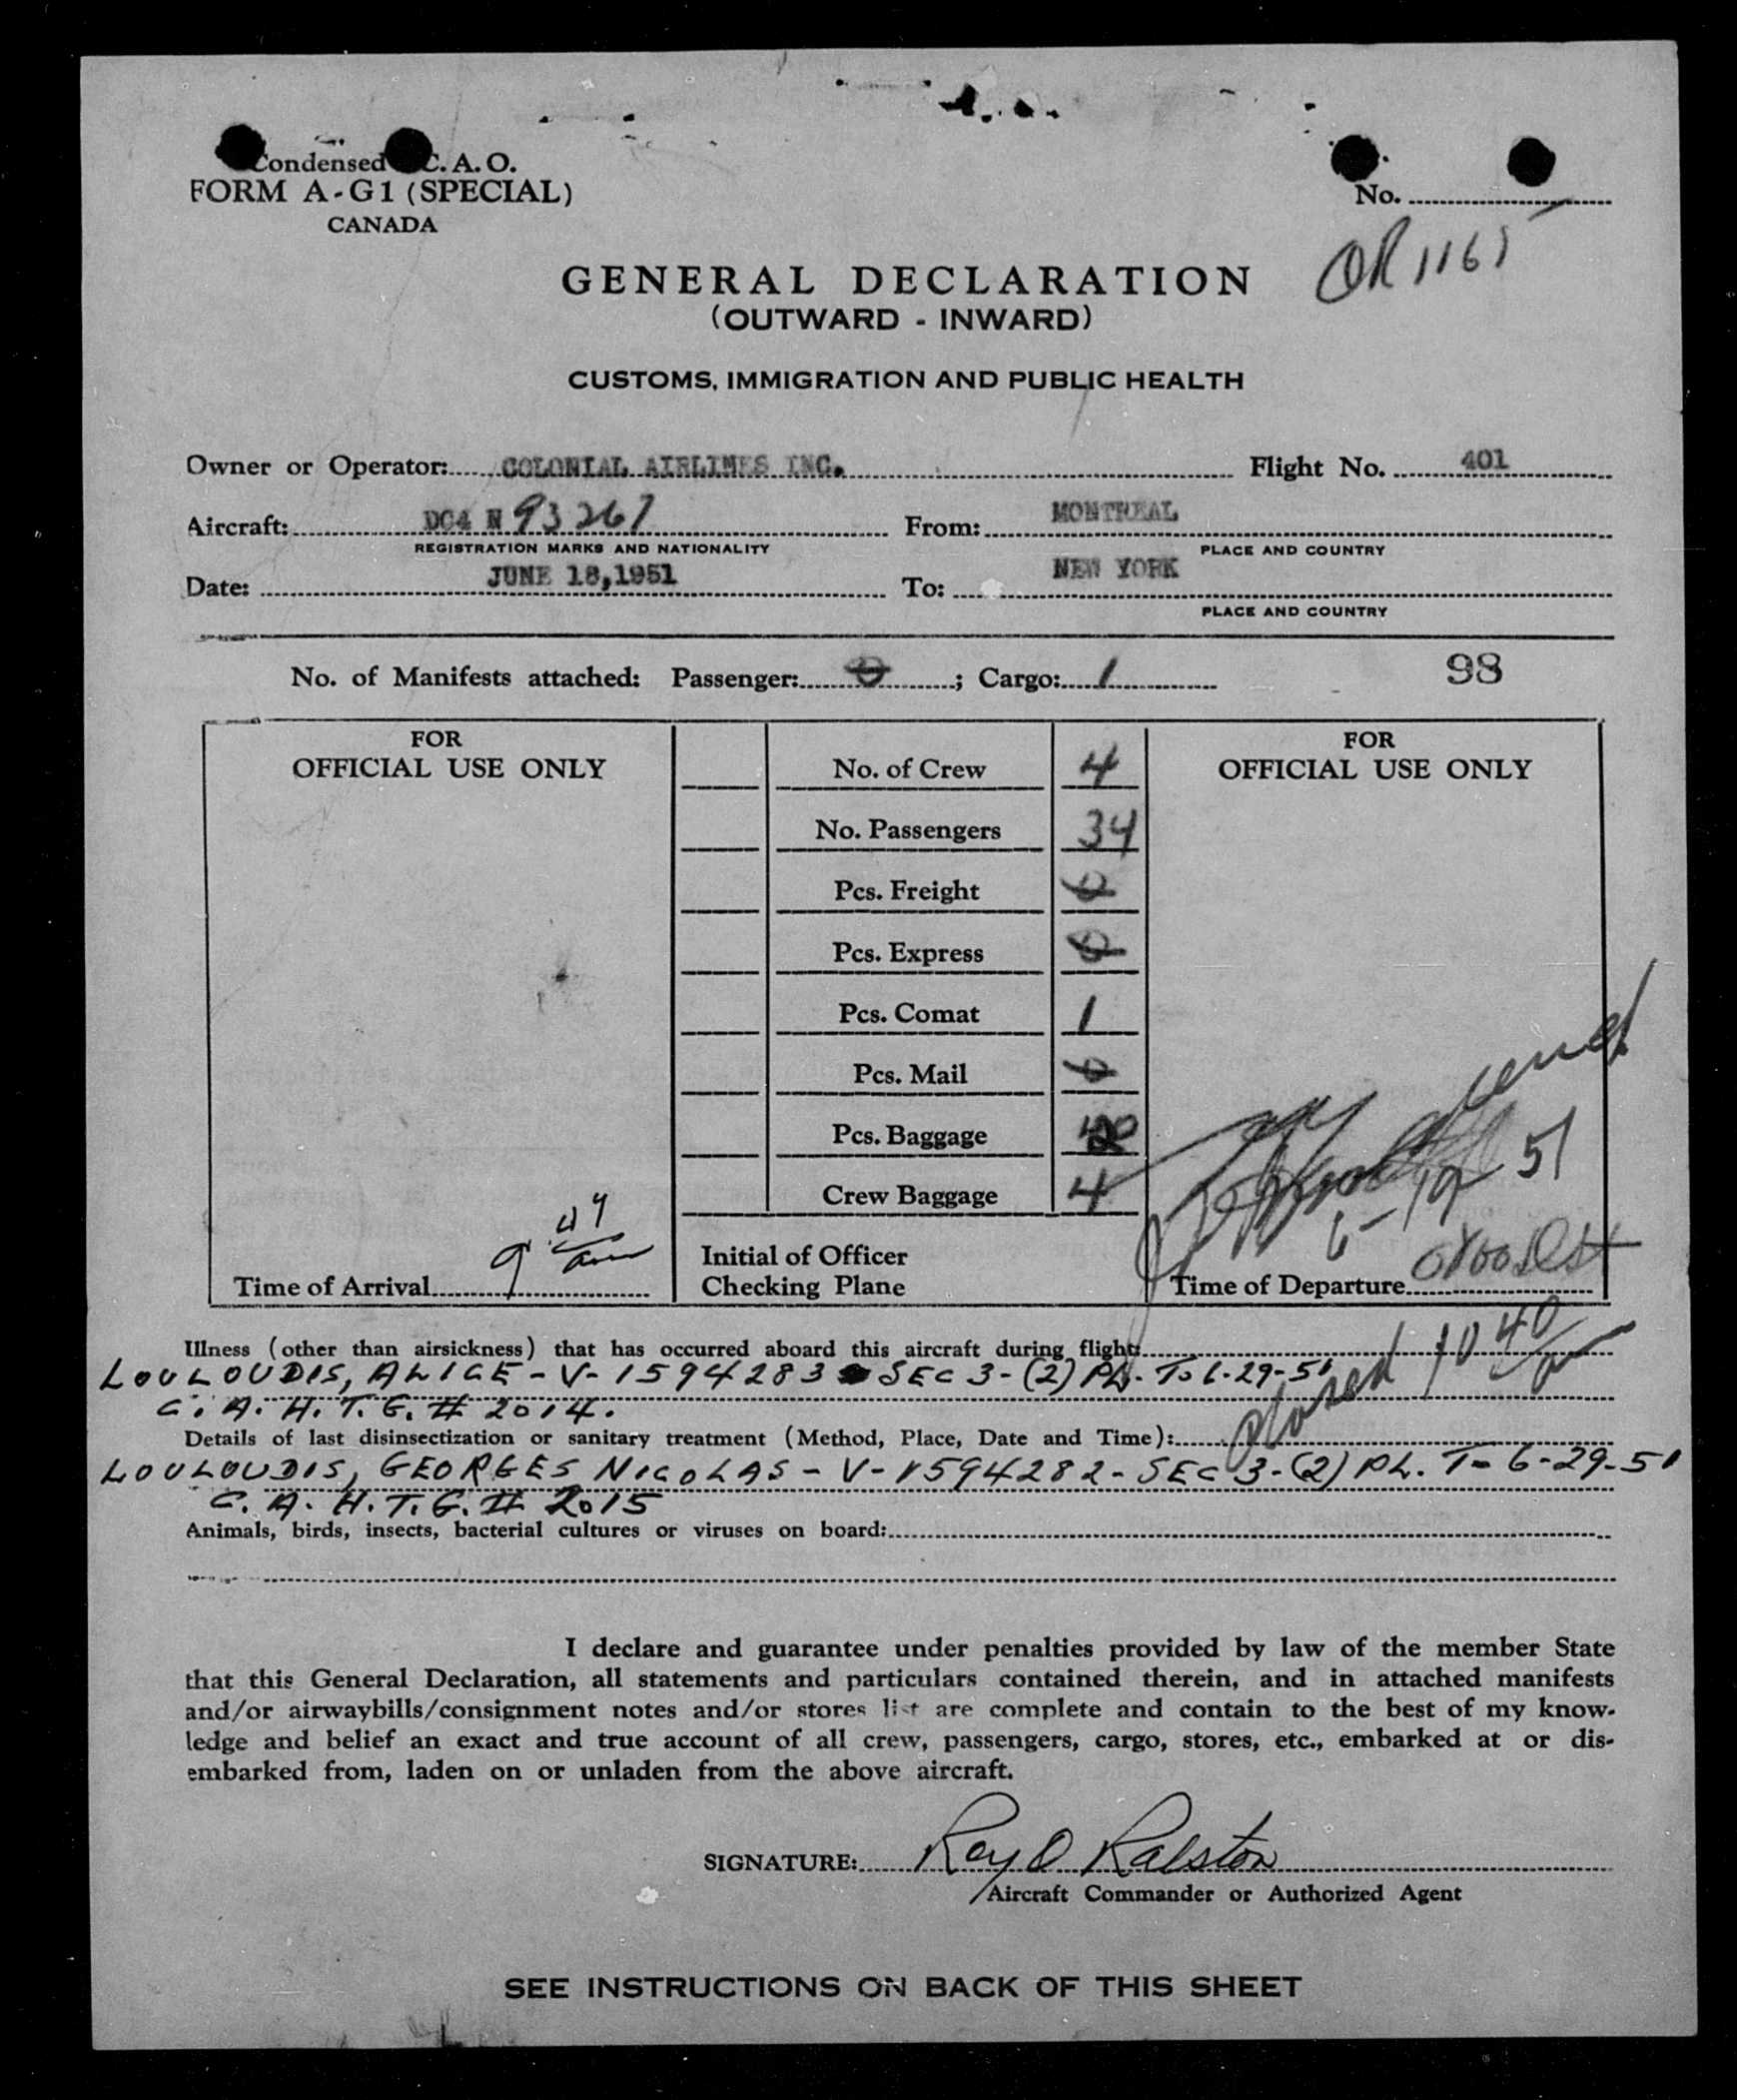 Condensed C. A. O.
FORM A-G1 (SPECIAL)
CANADA
No.
OR 1165
GENERAL DECLARATION
(OUTWARD - INWARD)
CUSTOMS, IMMIGRATION AND PUBLIC HEALTH
Owner or Operator: COLONIAL AIRLINES INC. Flight No. 401
Aircraft: DC4 N 93267 From: MONTREAL
REGISTRATION MARKS AND NATIONALITY PLACE AND COUNTRY
Date: JUNE 18,1951 To: NEW YORK
PLACE AND COUNTRY
No. of Manifests attached: Passenger: 0 ; Cargo: 1 98
FOR
OFFICIAL USE ONLY
No. of Crew 4
No. Passengers 34
Pcs. Freight 0
Pcs. Express 0
Pcs. Comat 1
Pcs. Mail 0
Pcs. Baggage
Crew Baggage 4
Initial of Officer
Checking Plane
FOR
OFFICIAL USE ONLY
51
Time of Arrival 9 49 am
Time of Departure 0800 Dst
Illness (other than airsickness) that has occurred aboard this aircraft during flight:
LOULOUDIS, ALICE - V-1594283 SEC 3-(2) PL. T. 6-29-51
C. A. H. T. G. # 2014.
10 40
Details of last disinsectization or sanitary treatment (Method, Place, Date and Time):
LOULOUDIS, GEORGES NICOLAS - V-1594282 - SEC 3-(2) PL. T- 6-29-51
C. A. H. T. G. # 2015
Animals, birds, insects, bacterial cultures or viruses on board:
I declare and guarantee under penalties provided by law of the member State
that this General Declaration, all statements and particulars contained therein, and in attached manifests
and/or airwaybills/consignment notes and/or stores list are complete and contain to the best of my know-
ledge and belief an exact and true account of all crew, passengers, cargo, stores, etc., embarked at or dis-
embarked from, laden on or unladen from the above aircraft.
SIGNATURE: Roy O Ralston
Aircraft Commander or Authorized Agent
SEE INSTRUCTIONS ON BACK OF THIS SHEET